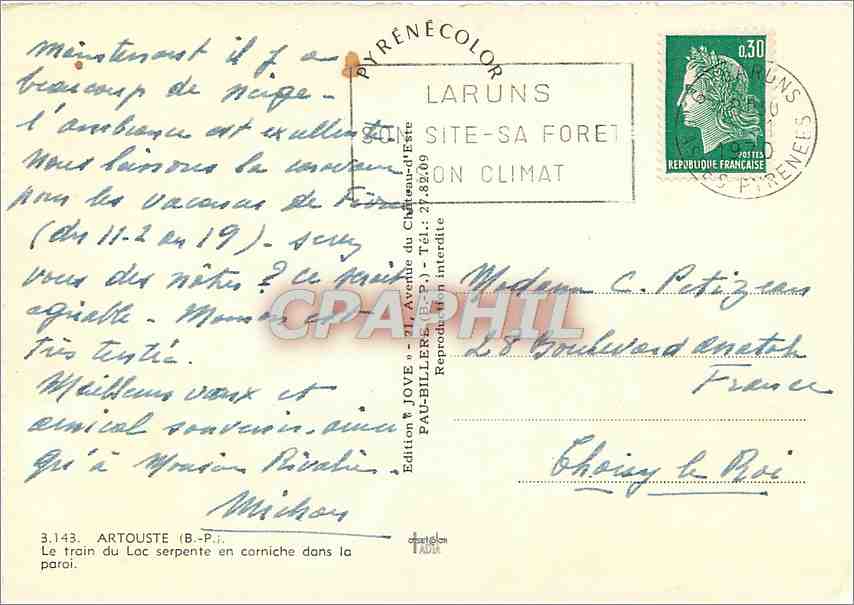 Maintenant il y a
beaucoup de neige -
l'ambiance est excellente
Nous laissons la caravane
pour les vacances de Février
(du 11-2 au 19) - serez
vous des nôtres ? ce serait
agréable - Maman est
très tentée.
Meilleurs vœux et
amical souvenir - ainsi
qu'à
Michou
3.143. ARTOUSTE (B.-P.).
Le train du Lac serpente en corniche dans la
paroi.
PYRÉNÉCOLOR
LARUNS
SON SITE - SA FORET
SON CLIMAT
0,30
POSTES
REPUBLIQUE FRANÇAISE
LARUNS
1970
PYRENEES
Edition « JOVE » - 21, Avenue du Château-d'Este
PAU-BILLERE (B.-P.) - Tél.: 27.82.09
Reproduction interdite
CPAPHIL
Madame C. Petizean
28 Boulevard Anatole
France
Choisy le Roi